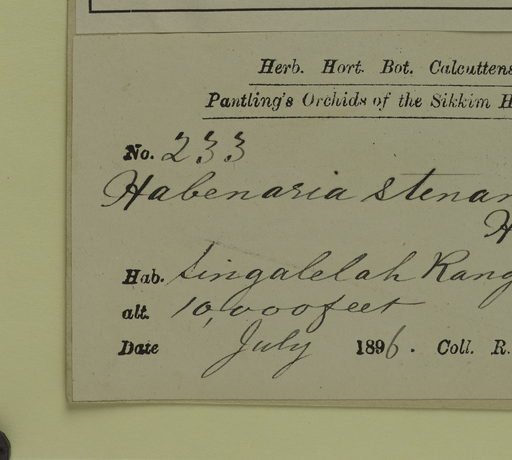 Herb. Hort. Bot. Calcuttens
Pantling's Orchids of the Sikkim H
No. 233
Habenaria stenan
H
Hab. Singalelah Rang
alt. 10,000 feet
Date July 1896. Coll. R.